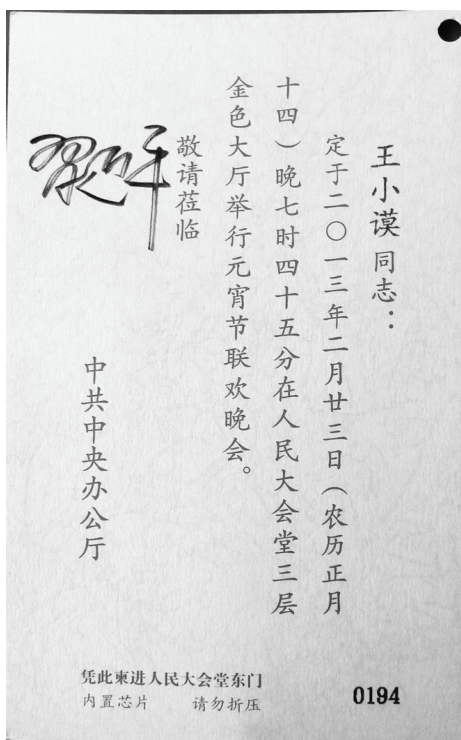 王小谟同志：
定于二〇一三年二月廿三日（农历正月
十四）晚七时四十五分在人民大会堂三层
金色大厅举行元宵节联欢晚会。
敬请莅临
中共中央办公厅
凭此柬进人民大会堂东门
内置芯片 请勿折压
0194